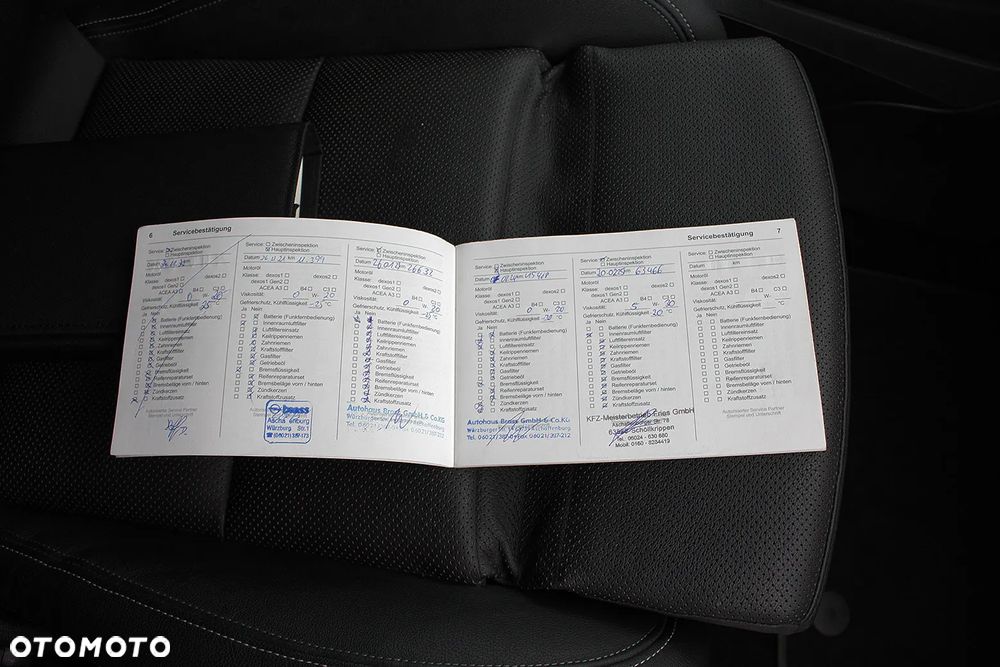 6 Servicebestätigung
Service: Zwischeninspektion
Hauptinspektion
Datum
Motoröl
Klasse: dexos1 dexos2
dexos1 Gen2
ACEA A3 B4 C3
Viskosität: 0 W-
Gefrierschutz, Kühlflüssigkeit °C
Ja Nein
Batterie (Funkfernbedienung)
Innenraumluftfilter
Luftfiltereinsatz
Keilrippenriemen
Zahnriemen
Kraftstofffilter
Gasfilter
Getriebeöl
Bremsflüssigkeit
Reifenreparaturset
Bremsbeläge vorn / hinten
Zündkerzen
Kraftstoffzusatz
Autorisierter Service Partner
Stempel und Unterschrift
Service: Zwischeninspektion
Hauptinspektion
Datum 26.11.21 km 11.399
Motoröl
Klasse: dexos1 dexos2
dexos1 Gen2
ACEA A3 B4 C3
Viskosität: 0 W- 20
Gefrierschutz, Kühlflüssigkeit -25 °C
Ja Nein
Batterie (Funkfernbedienung)
Innenraumluftfilter
Luftfiltereinsatz
Keilrippenriemen
Zahnriemen
Kraftstofffilter
Gasfilter
Getriebeöl
Bremsflüssigkeit
Reifenreparaturset
Bremsbeläge vorn / hinten
Zündkerzen
Kraftstoffzusatz
brass
Würzburg Str.1
Service: Zwischeninspektion
Hauptinspektion
Datum km 26632
Motoröl
Klasse: dexos1 dexos2
dexos1 Gen2
ACEA A3 B4 C3
Viskosität: 0 W- 20
Gefrierschutz, Kühlflüssigkeit °C
Ja Nein
Batterie (Funkfernbedienung)
Innenraumluftfilter
Luftfiltereinsatz
Keilrippenriemen
Zahnriemen
Kraftstofffilter
Gasfilter
Getriebeöl
Bremsflüssigkeit
Reifenreparaturset
Bremsbeläge vorn / hinten
Zündkerzen
Kraftstoffzusatz
Autohaus Brass GmbH & Co.KG
Servicebestätigung 7
Service: Zwischeninspektion
Hauptinspektion
Datum km
Motoröl
Klasse: dexos1 dexos2
dexos1 Gen2
ACEA A3 B4 C3
Viskosität: 0 W- 20
Gefrierschutz, Kühlflüssigkeit °C
Ja Nein
Batterie (Funkfernbedienung)
Innenraumluftfilter
Luftfiltereinsatz
Keilrippenriemen
Zahnriemen
Kraftstofffilter
Gasfilter
Getriebeöl
Bremsflüssigkeit
Reifenreparaturset
Bremsbeläge vorn / hinten
Zündkerzen
Kraftstoffzusatz
Autohaus Brass GmbH & Co.KG
Service: Zwischeninspektion
Hauptinspektion
Datum km 63466
Motoröl
Klasse: dexos1 dexos2
dexos1 Gen2
ACEA A3 B4 C3
Viskosität: 5 W-
Gefrierschutz, Kühlflüssigkeit 20 °C
Ja Nein
Batterie (Funkfernbedienung)
Innenraumluftfilter
Luftfiltereinsatz
Keilrippenriemen
Zahnriemen
Kraftstofffilter
Gasfilter
Getriebeöl
Bremsflüssigkeit
Reifenreparaturset
Bremsbeläge vorn / hinten
Zündkerzen
Kraftstoffzusatz
KFZ-Meisterbetrieb GmbH
Schöllkrippen
Tel.: 06024 - 630 680
Mobil: 0160 - 8284419
Service: Zwischeninspektion
Hauptinspektion
Datum km
Motoröl
Klasse: dexos1 dexos2
dexos1 Gen2
ACEA A3 B4 C3
Viskosität: W-
Gefrierschutz, Kühlflüssigkeit °C
Ja Nein
Batterie (Funkfernbedienung)
Innenraumluftfilter
Luftfiltereinsatz
Keilrippenriemen
Zahnriemen
Kraftstofffilter
Gasfilter
Getriebeöl
Bremsflüssigkeit
Reifenreparaturset
Bremsbeläge vorn / hinten
Zündkerzen
Kraftstoffzusatz
Autorisierter Service Partner
Stempel und Unterschrift
OTOMOTO